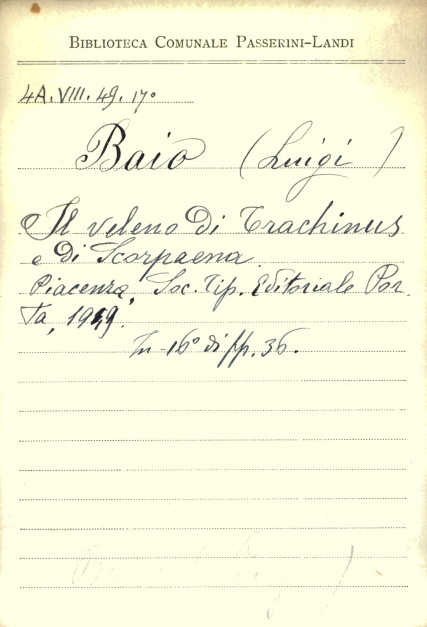 BIBLIOTECA COMUNALE PASSERINI-LANDI
4A. VIII. 49. 17°
Baio (Luigi)
Il veleno di Trachinus
e di Scorpaena.
Piacenza, Soc. Tip. Editoriale Por-
ta, 1919.
In-16° di pp. 36.